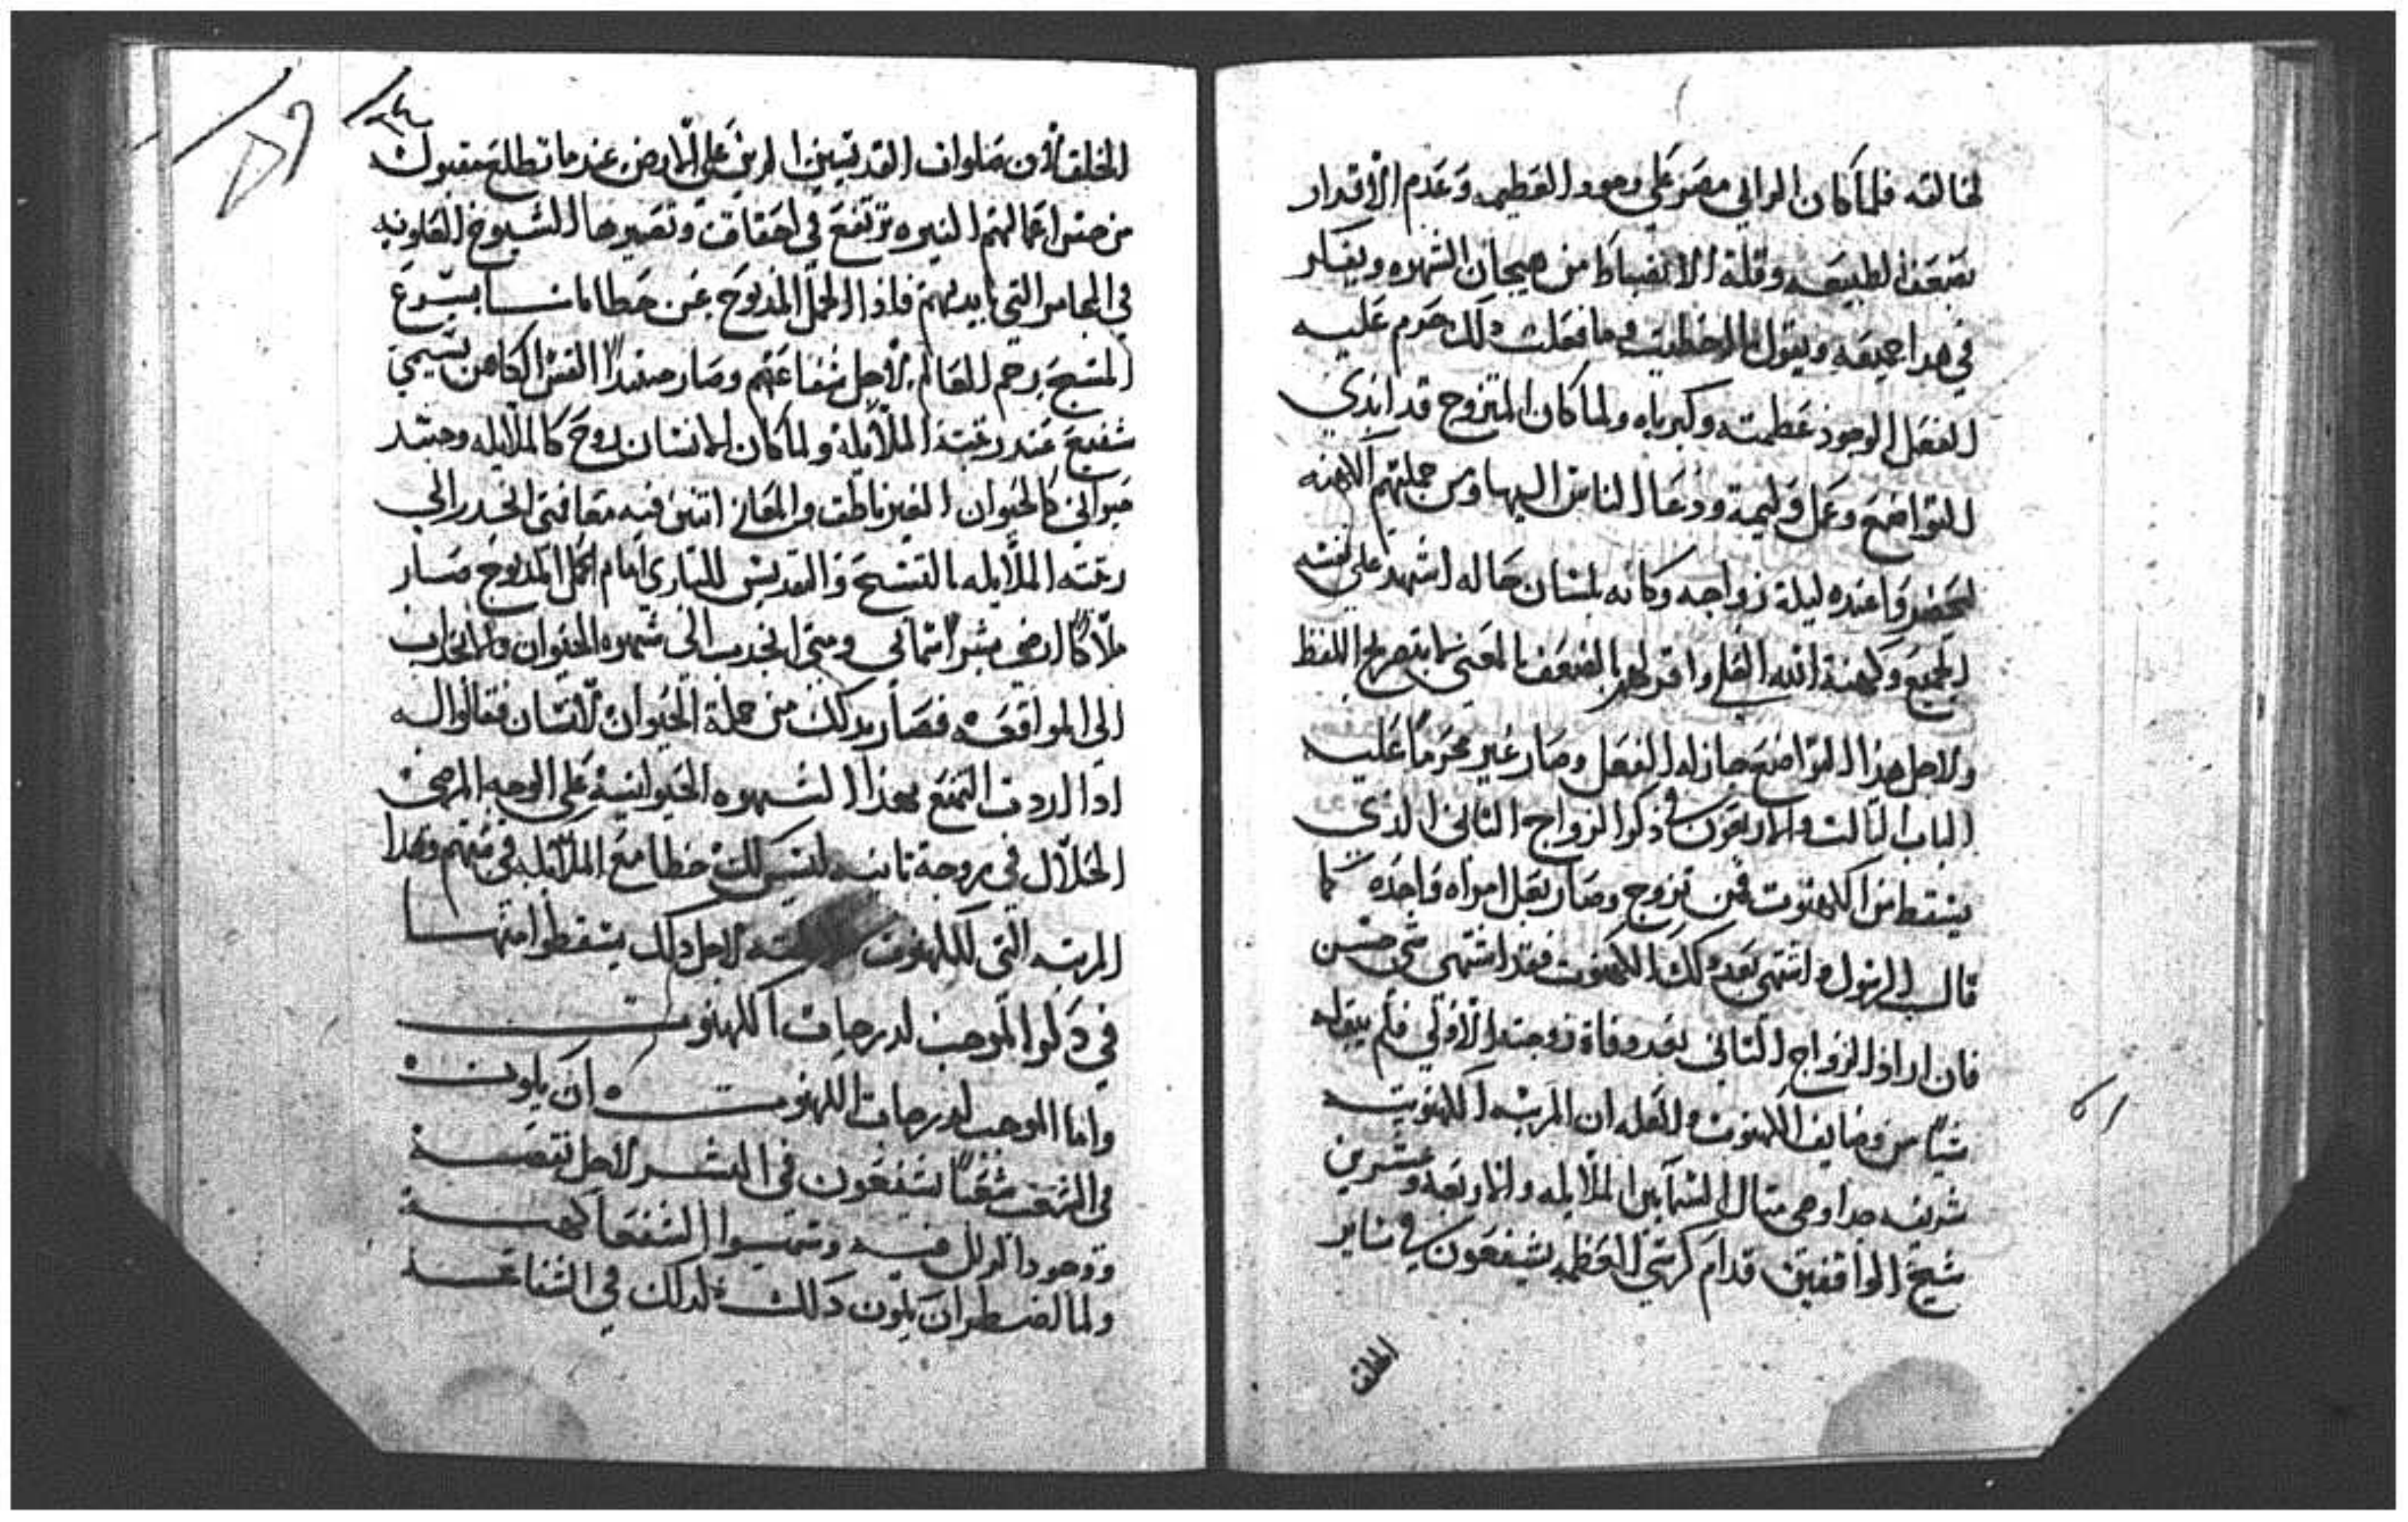 لخالقه فلما كان الزاني مصر على وجود العظمه وعدم الاقرار
بضعف الطبيعه وقلة الانضباط من هيجان الشهوه ويفكر
في هدا جميعه ويقول ما اخطيت وما فعلت دلك حرم عليه
الفعل لوجود عظمته وكبرياه ولما كان المتزوج قد ابدي
التواضع وعمل وليمة ودعا الناس اليها ومن جملتهم الكهنه
ليحضروا عنده ليلة زواجه وكانه بلسان حاله اشهد على نفسه
الجميع وكهنة الله العلي واقر لهم بالضعف بالمعني لا بتصريح اللفظ
ولاجل هذا التواضع جاز له الفعل وصار غير محروما عليه
الباب التالت والاربعون في ذكر الزواج التاني الذي
يسقط من الكهنوت فمن تزوج وصار بعل امراه واحده كما
قال الرسول واشتهي بعد دلك الكهنوت فقد اشتهي شي حسن
فان اراد الزواج التاني بعد وفاة زوجته الاولي فلم يبقا له
شيا من وضايف الكهنوت والعله ان المرتبه الكهنوتيه
شريفه جدا وهي متال السمايين الملايكه والاربعه وعشرين
شيخ الواقفين قدام كرسي العظمه يشفعون في ساير
الخلق
الخلق لان صلوات القديسين الدين على الارض عندما تطلع مقبوله
من حسن اعمالهم النيره ترتفع في احقاق وتصيرها الشيوخ العلويه
في المجامر التي بايديهم فاذا الحمل المدبوح عن خطايانا يسوع
المسيح يرحم العالم لاجل شفاعتهم وصار القس الكاهن يسمي
شفيع عند رتبة الملايكه ولما كان الانسان روح كالملايكه وجسد
حيواني كالحيوان الغير ناطق والمعاني اتنين فيه معا فمتي انجدر الي
رتبه الملايكه بالتسبيح والتقديس للباري امام الحمل المدبوح صار
ملاكا ارضي بشرا سمائي ومتي انجدب الي شهوه الحيوان والانجداب
الي المواقعه فصار بدلك من جملة الحيوان الانسان فقالوا له
ادا اردت التمتع بهذا الشهوه الحيوانيه على الوجه المرضي
الحلال في زوجة تانيه ليس لك خطا مع الملايكه في رتبتهم وهدا
المرتبه التي للكهنوت لاجل دلك يسقطوا منها
في ذكر الموجب لدرجات الكهنوت
واما الموجب لدرجات الكهنوت ان يكون
في الشعب شفعا يشفعون في البشر لاجل نقصه
ووجود الزلل فيه وسميوا الشفعا كهنه
ولما اضطر ان يكون دلك لدلك في الشفاعه